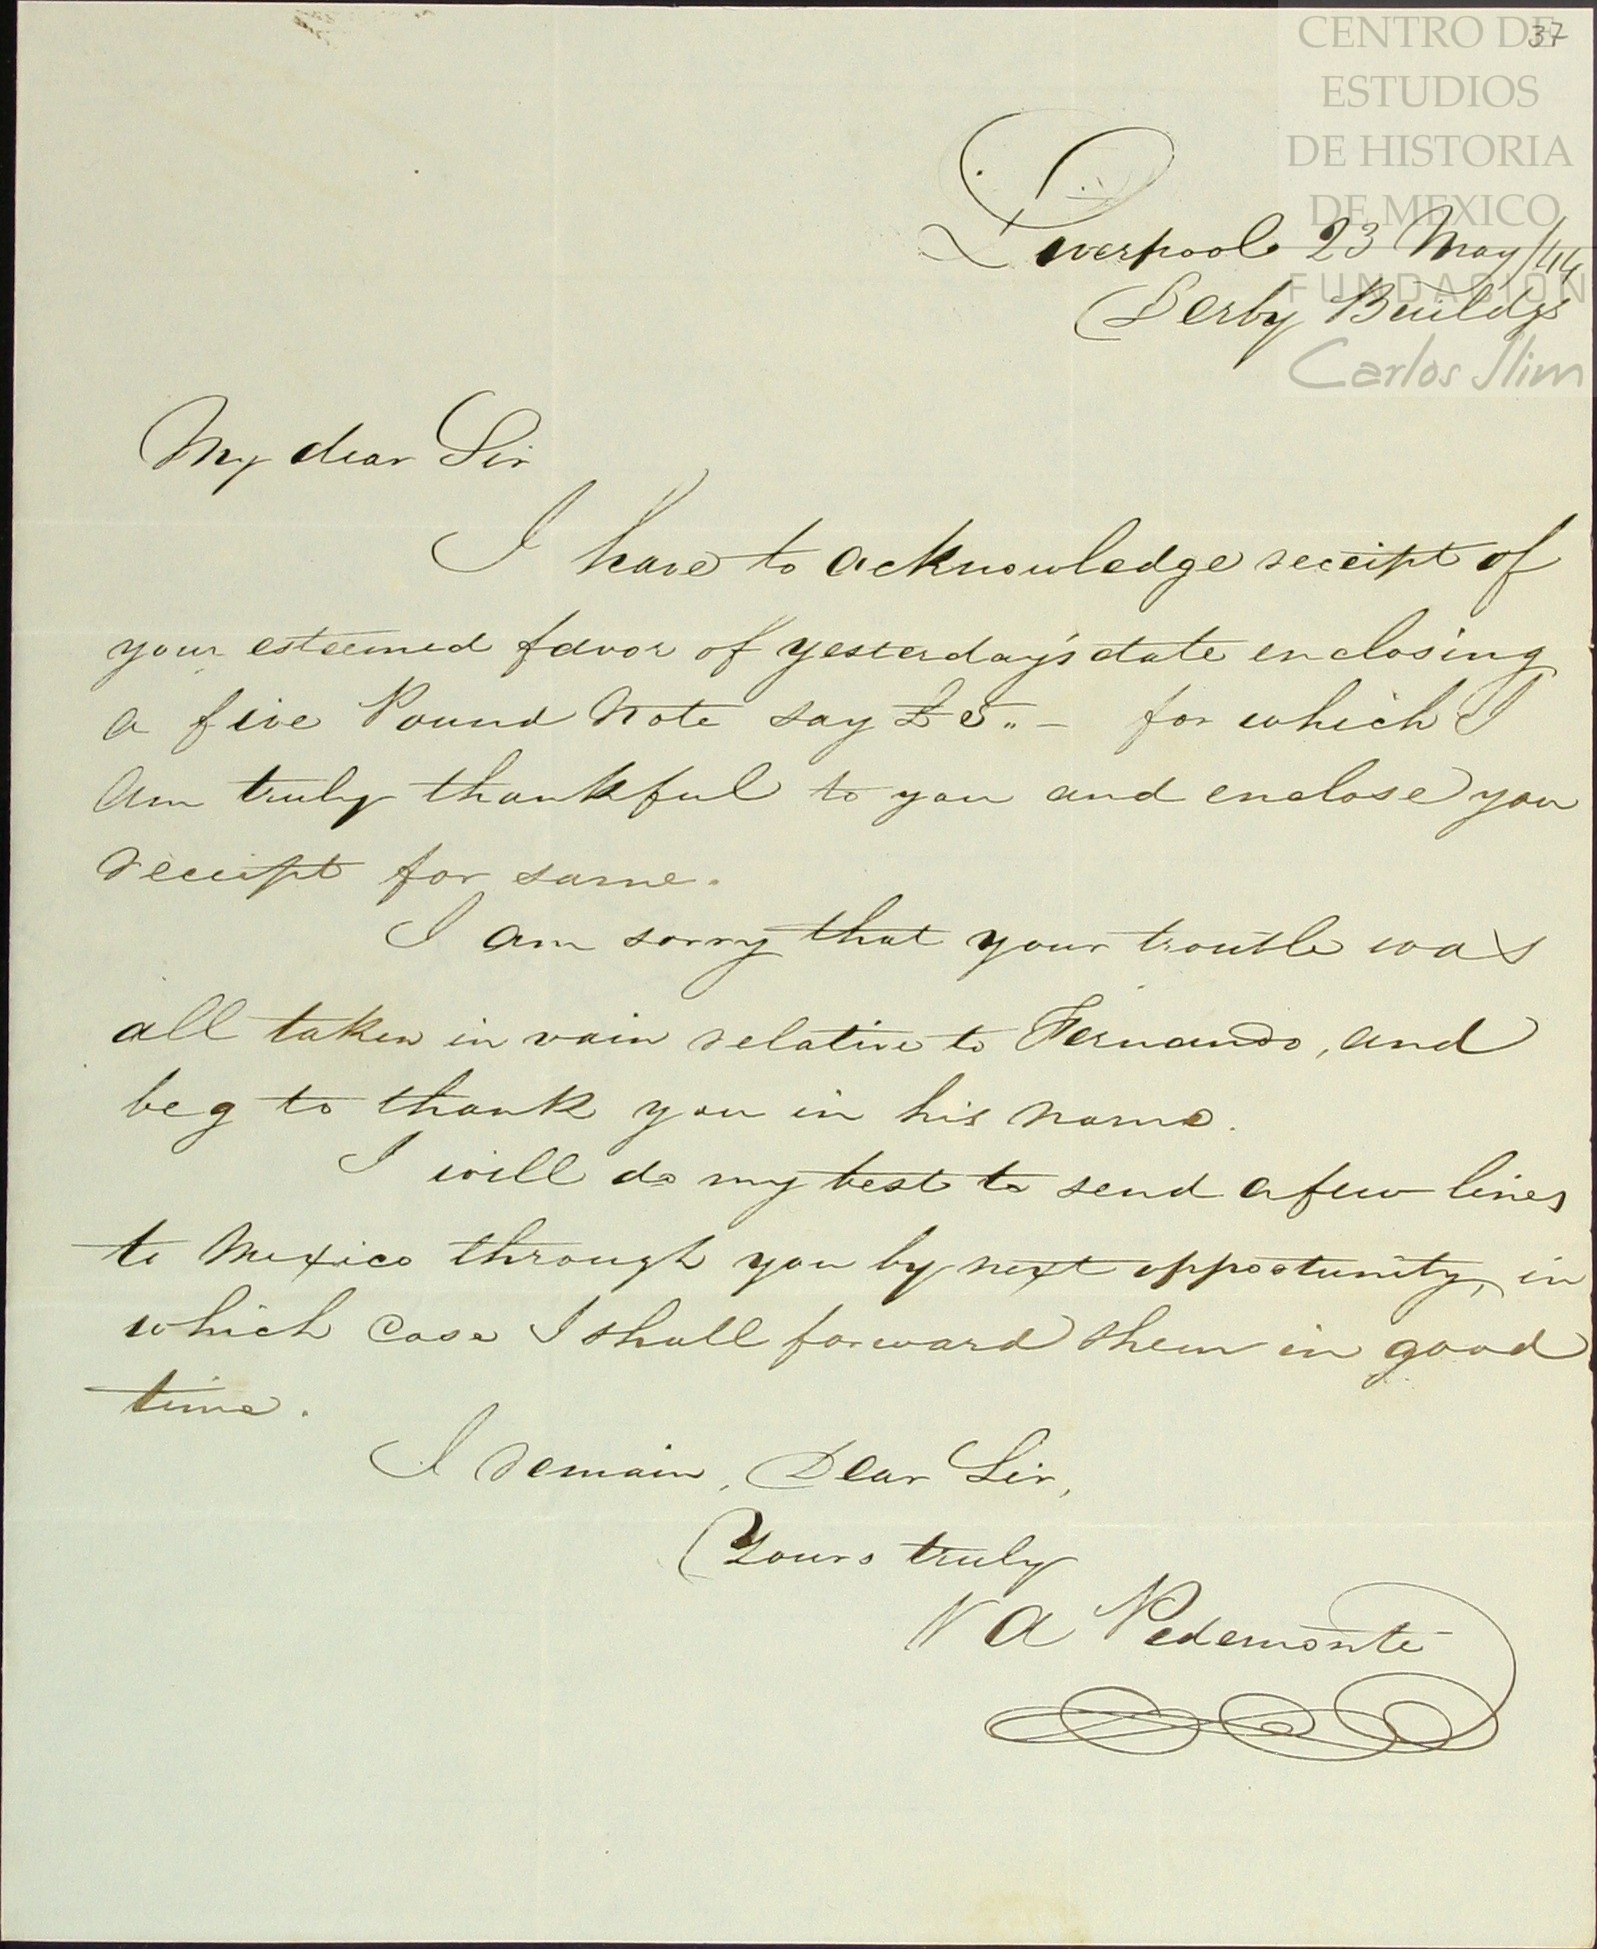 37
CENTRO DE
ESTUDIOS
DE HISTORIA
DE MEXICO
FUNDACION
Carlos Slim
Liverpool 23 May/44
Derby Buildgs
My dear Sir
I have to acknowledge receipt of
your esteemed favor of yesterday's date enclosing
a five Pound Note say £5.. – for which I
am truly thankful to you and enclose you
receipt for same.
I am sorry that your trouble was
all taken in vain relative to Fernando, and
beg to thank you in his name.
I will do my best to send a few lines
to Mexico through you by next opportunity, in
which case I shall forward them in good
time.
I remain, Dear Sir,
Yours truly
V A Pedemonte